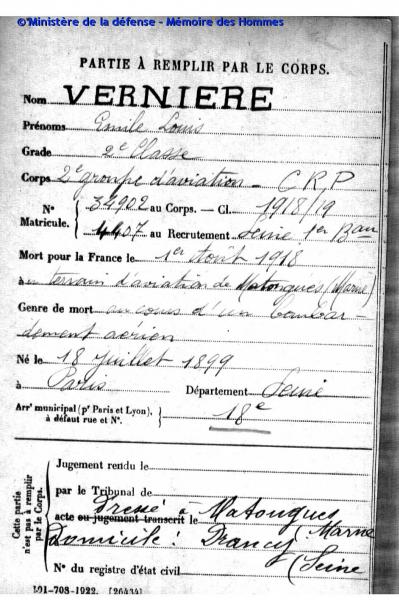 © Ministère de la défense - Mémoire des Hommes
PARTIE À REMPLIR PAR LE CORPS.
Nom VERNIERE
Prénoms Emile Louis
Grade 2e Classe
Corps 2e groupe d'aviation - C R P
N° 34902 au Corps. — Cl. 1918/19
Matricule. 4407 au Recrutement Seine 1er Bau
Mort pour la France le 1er Août 1918
à terrain d'aviation de Matougues (Marne)
Genre de mort au cours d'un bombar-
dement aérien
Né le 18 Juillet 1899
à Paris Département Seine
Arrt municipal (pr Paris et Lyon), à défaut rue et N°. 18e
Cette partie n'est pas à remplir par le Corps.
Jugement rendu le
par le Tribunal de
acte ou jugement transcrit le Dressé à Matougues, Marne
Domicile : Drancy (Seine
N° du registre d'état civil
101-708-1922. [26434]